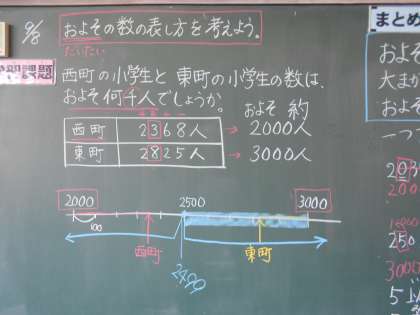 およその数の表し方を考えよう。
だいたい
西町の小学生と東町の小学生の数は、
およそ何千人でしょうか。
およそ 約
西町 2368人 → 2000人
東町 2825人 → 3000人
2000 2500 3000
100
西町
2499
東町
まとめ
およそ
大まか
およそ
一つ
203
200
250
3000
5以